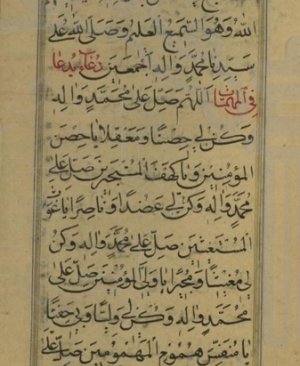 الله وهو السميع العليم وصلى الله على
سيدنا محمد واله اجمعين دعا
في المهمات اللهم صل على محمد واله
وكن لي حصنا ومعقلا يا حصن
المؤمنين ويا كهف المستجيرين صل على
محمد واله وكن لي عضدا وناصرا يا غوث
المستغيثين صل على محمد واله وكن
لي مغيثا ومجيرا يا ولي المؤمنين صل على
محمد واله وكن لي وليا وبي حفيا
يا منفس هموم المهمومين صل على